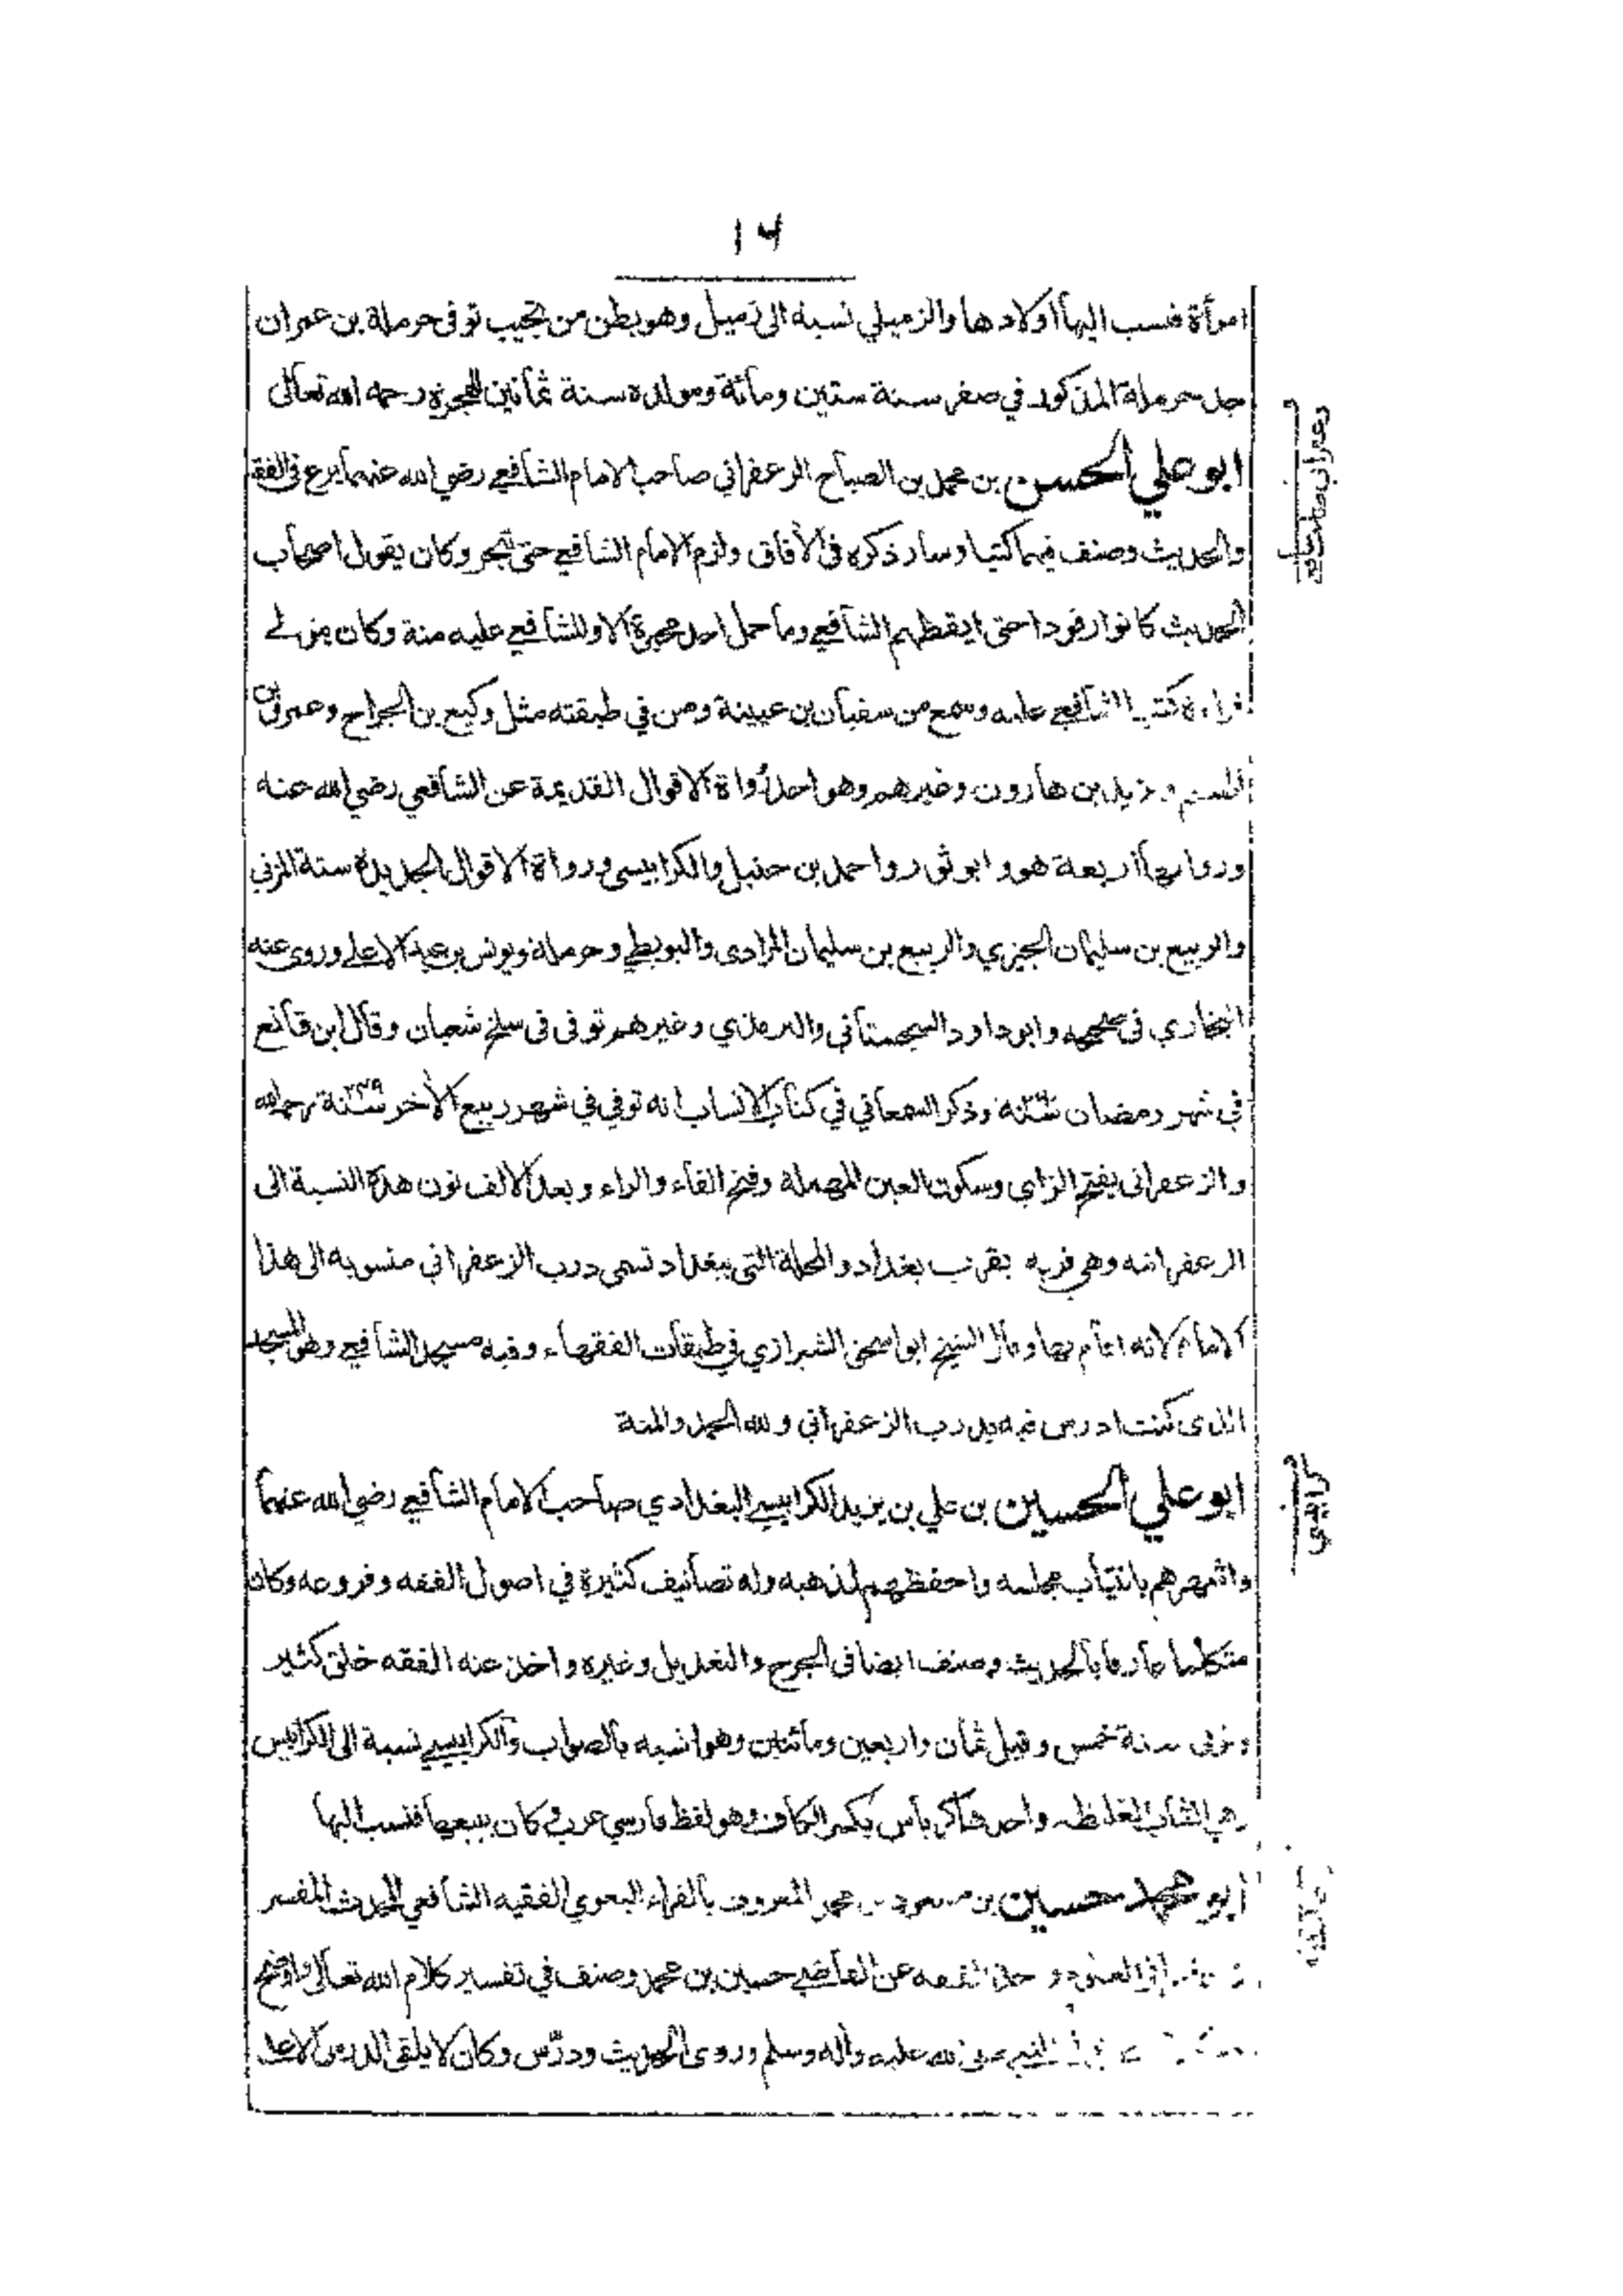 ۱۴
امرأة فنسب اليها اولادها والزميلي نسبة الى زميل وهو بطن من تجيب توفى حرملة بن عمران
جد حرملة المذكور في صفر سنة ستين ومائة ومولده سنة ثمانين للهجرة رحمه الله تعالى
ابو علي الحسن بن محمد بن الصباح الزعفراني صاحب الامام الشافعي رضي الله عنهما برع فى الفقه
والحديث وصنف فيهما كتبا وسار ذكره فى الآفاق ولزم الامام الشافعي حتى تبحر وكان يقول اصحاب
الحديث كانوا رقودا حتى ايقظهم الشافعي وما حمل احد محبرة الا وللشافعي عليه منة وكان يتولى
قراءة كتب الشافعي عليه وسمع من سفيان بن عيينة ومن في طبقته مثل وكيع بن الجراح وعمرو بن
الهيثم ويزيد بن هارون وغيرهم وهو احد رُواة الاقوال القديمة عن الشافعي رضي الله عنه
ورواتها اربعة هو وابو ثور واحمد بن حنبل والكرابيسي ورواة الاقوال الجديدة ستة المزني
والربيع بن سليمان الجيزي والربيع بن سليمان المرادى والبويطي وحرملة ويونس بن عبد الاعلى وروى عنه
البخاري فى صحيحه وابو داود السجستاني والترمذي وغيرهم توفى فى سلخ شعبان وقال ابن قانع
في شهر رمضان سنة وذكر السمعاني في كتاب الانساب انه توفي في شهر ربيع الآخر سنة ۲۴۹ رحمه الله
والزعفراني بفتح الزاي وسكون العين المهملة وفتح الفاء والراء وبعد الالف نون هذه النسبة الى
الزعفرانية وهي قرية بقرب بغداد والمحلة التي ببغداد تسمى درب الزعفراني منسوبة الى هذا
الامام لانه اقام بها وقال الشيخ ابو اسحق الشيرازي في طبقات الفقهاء وفيه مسجد الشافعي وهو المسجد
الذى كنت ادرس فيه بدرب الزعفراني ولله الحمد والمنة
ابو علي الحسين بن علي بن يزيد الكرابيسي البغدادي صاحب الامام الشافعي رضي الله عنهما
واشهرهم بانتياب مجلسه واحفظهم لمذهبه وله تصانيف كثيرة في اصول الفقه وفروعه وكان
متكلما عارفا بالحديث وصنف ايضا فى الجرح والتعديل وغيره واخذ عنه الفقه خلق كثير
وتوفى سنة خمس وقيل ثمان واربعين ومائتين وهو اشبه بالصواب والكرابيسي نسبة الى الكرابيس
وهي الثياب الغليظة واحدها كرباس بكسر الكاف وهو لفظ فارسي عرب وكان يبيعها فنسب اليها
ابو محمد حسين بن مسعود بن محمد المعروف بالفراء البغوي الفقيه الشافعي المحدث المفسر
فى العلوم و الفقه عن القاضي حسين بن محمد وصنف في تفسير كلام الله تعالى واوضح
النبي صلى الله عليه واله وسلم وروى الحديث ودرّس وكان لا يلقى الدرس الا على
زعفرانی صاحب شافعی
کرابیسی